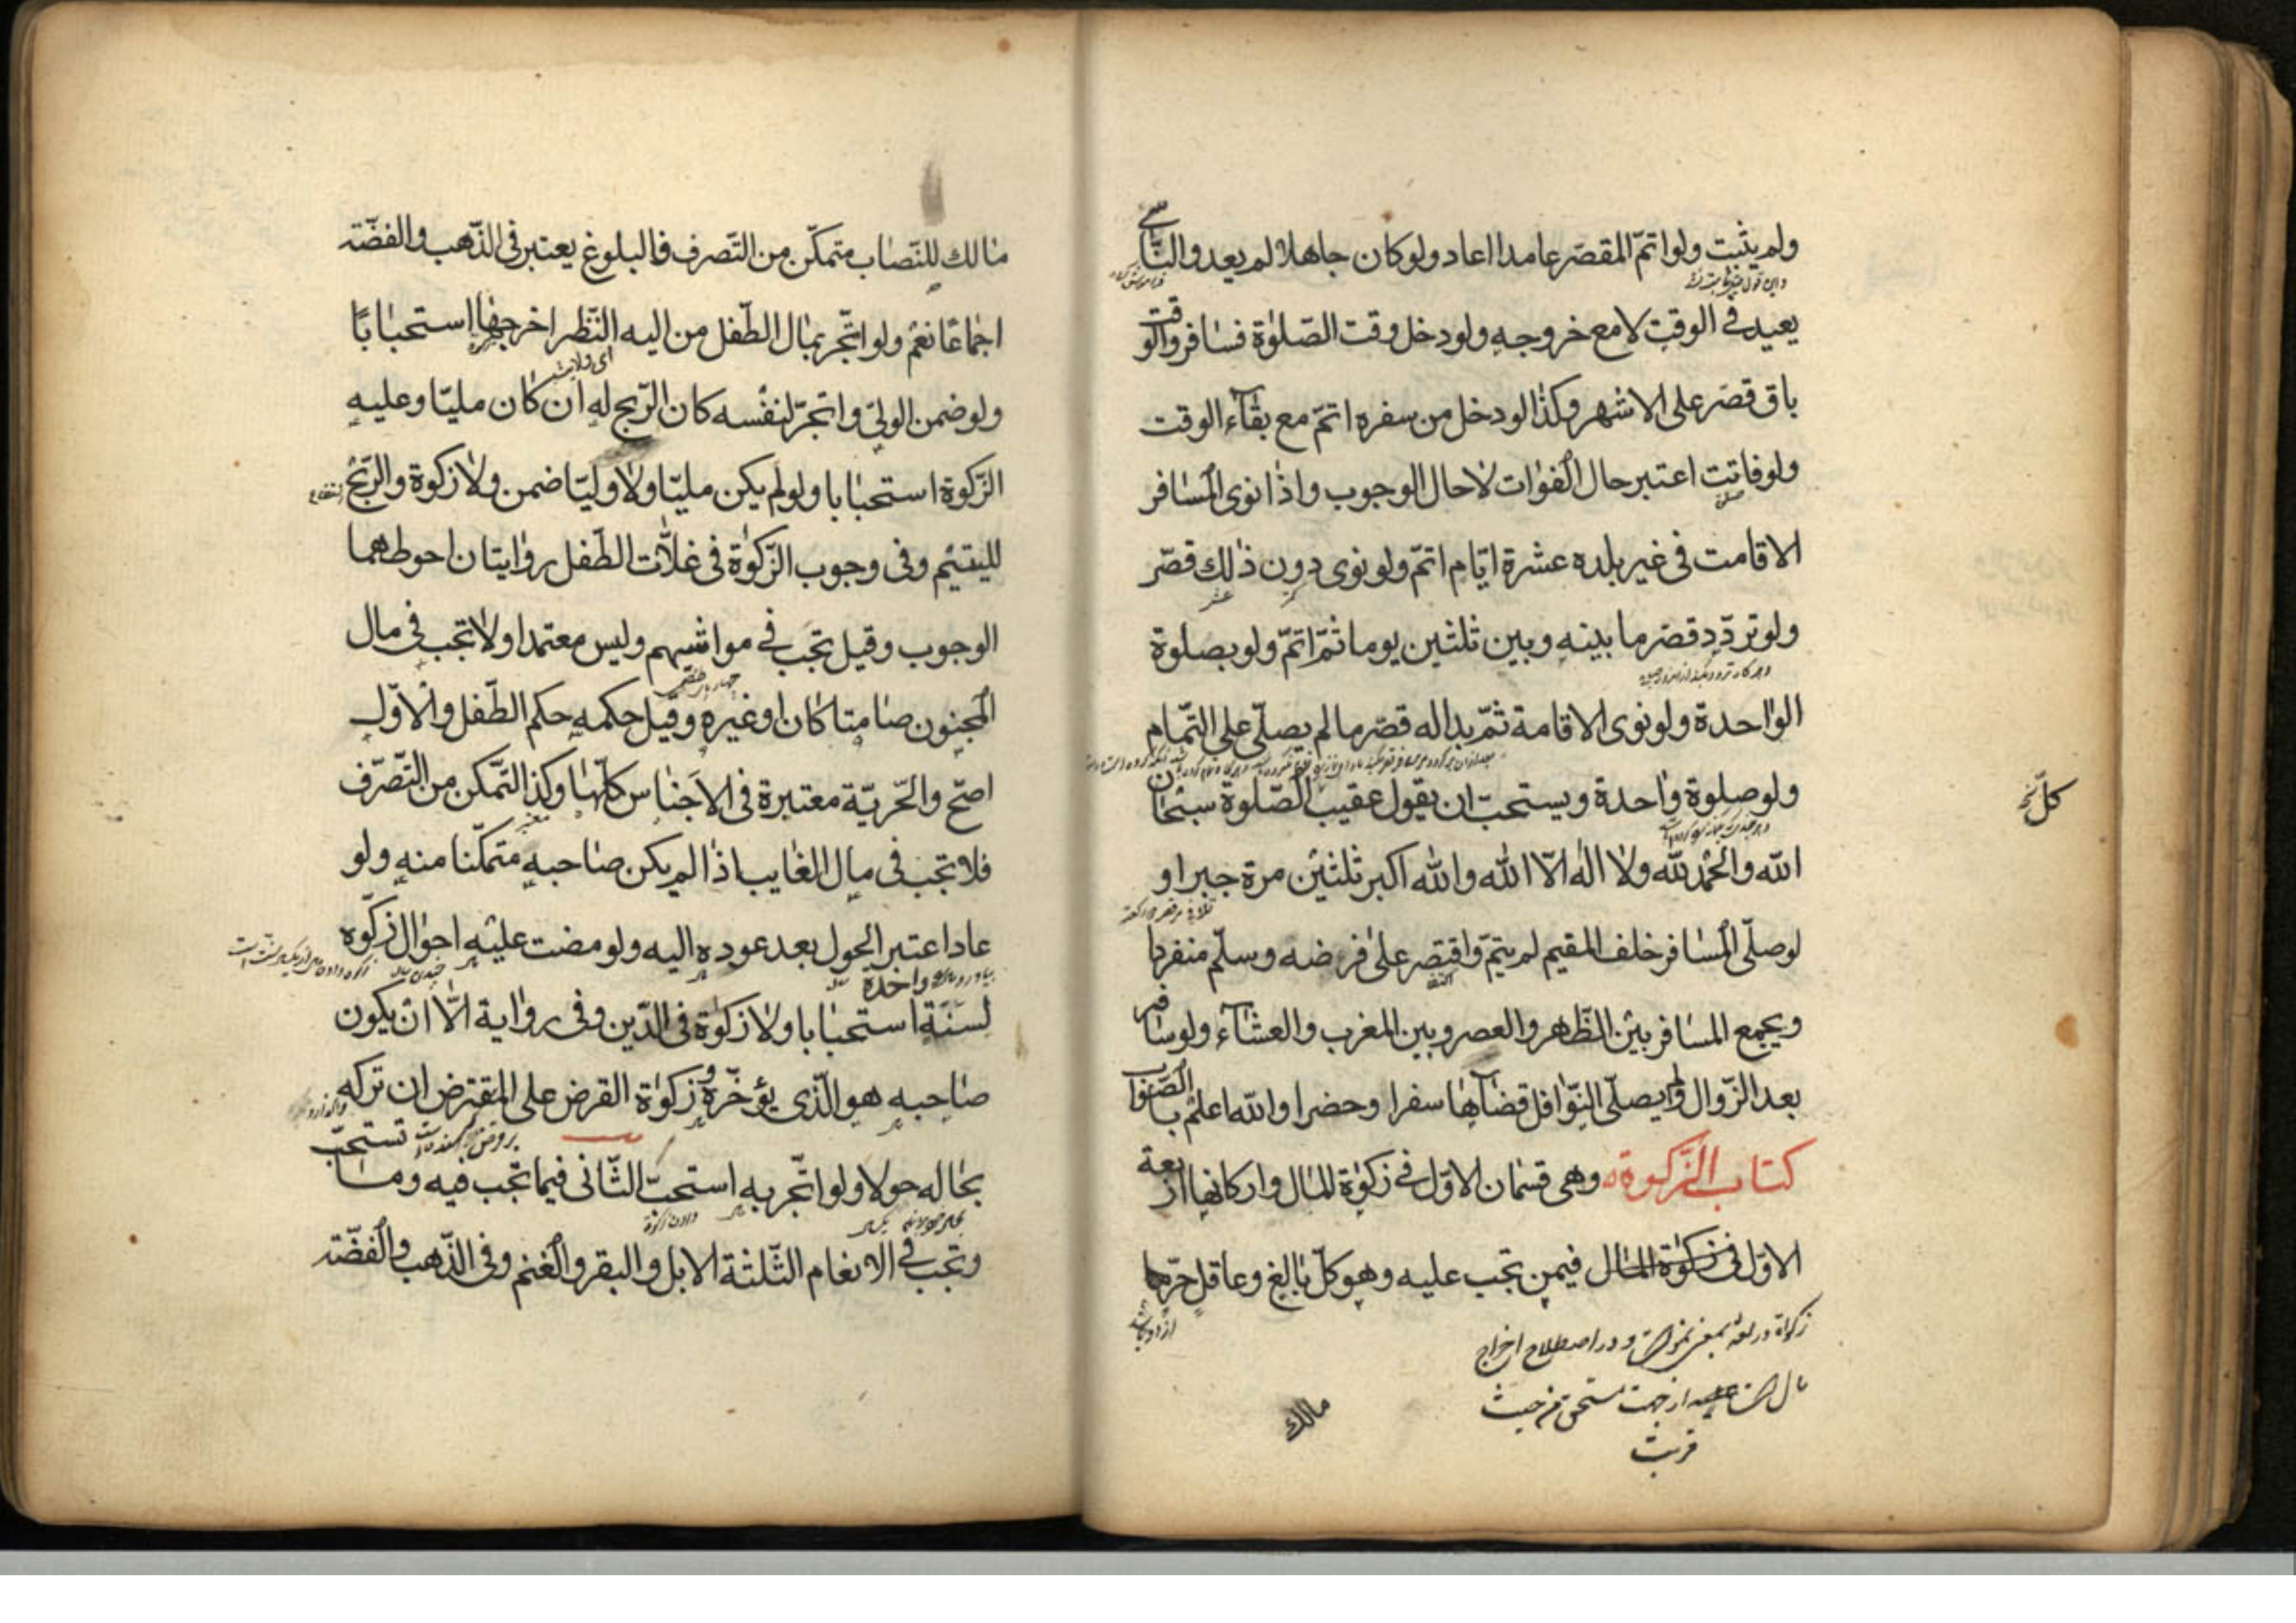 ولم يثبت ولو اتمّ المقصّر عامدا اعاد ولو كان جاهلا لم يعد والنّاسي
يعيد في الوقت لا مع خروجه ولو دخل وقت الصّلوٰة فسافر والوقت
باق قصّر على الاشهر وكذا لو دخل من سفره اتمّ مع بقآء الوقت
ولو فاتت اعتبر حال الفوات لا حال الوجوب واذا نوى المسافر
الاقامت في غير بلده عشرة ايّام اتمّ ولو نوى دون ذلك قصّر
ولو تردّد قصّر ما بينه وبين ثلثين يوما ثمّ اتمّ ولو بصلوة
الواحدة ولو نوى الاقامة ثمّ بدا له قصّر ما لم يصلّي على التّمام
ولو صلوة واحدة ويستحبّ ان يقول عقيب الصّلوة سبحان
كلّ
الله والحمد لله ولا اله الّا الله والله اكبر ثلثين مرة جبرا و
لو صلّى المسافر خلف المقيم لم يتمّ واقتصر على فرضه وسلّم منفردا
ويجمع المسافر بين الظّهر والعصر وبين المغرب والعشآء ولو سافر
بعد الزّوال ولم يصلّي النّوافل قضاها سفرا وحضرا والله اعلم بالصّواب
كتاب الزّكوة وهي قسمان الاوّل في زكوٰة المال واركانها اربعة
الاوّل في زكوٰة المال فيمن تجب عليه وهو كلّ بالغ وعاقل حرّ
زكواة در لغة بمعنى نمو است و در اصطلاح اخراج
مال است از جهت مستحق من حيث
قربت
مالك
مالك للنّصاب متمكّن من التّصرف فالبلوغ يعتبر في الذّهب والفضّة
اجماعا نعم ولو اتّجر بمال الطّفل من اليه النّظر اخرجها استحبابا
اى ولايت
ولو ضمن الولىّ واتّجر لنفسه كان الرّبح له ان كان مليّا وعليه
الزّكوة استحبابا ولو لم يكن مليّا ولا وليّا ضمن ولا زكوة والرّبح
لليتيم وفي وجوب الزّكوٰة في غلّات الطّفل روايتان احوطهما
الوجوب وقيل تجب في مواشيهم وليس معتمدا ولا تجب في مال
المجنون صامتا كان او غيره وقيل حكمه حكم الطّفل والاوّل
اصحّ والحّريّة معتبرة في الاجناس كلّها وكذا التّمكن من التّصرّف
فلا تجب في مال الغايب اذا لم يكن صاحبه متمكّنا منه ولو
عاد اعتبر الحول بعد عوده اليه ولو مضت عليه احوال زكّوه
لسنة واحدة استحبابا ولا زكوٰة في الدّين وفي رواية الّا ان يكون
صاحبه هو الّذى يؤخّره وزكوٰة القرض على المقترض ان تركه
بحاله حولا ولو اتّجر به استحبّ الثّاني فيما تجب فيه وما تستحبّ
وتجب في الانعام الثّلثة الابل والبقر والغنم وفي الذّهب والفضّة